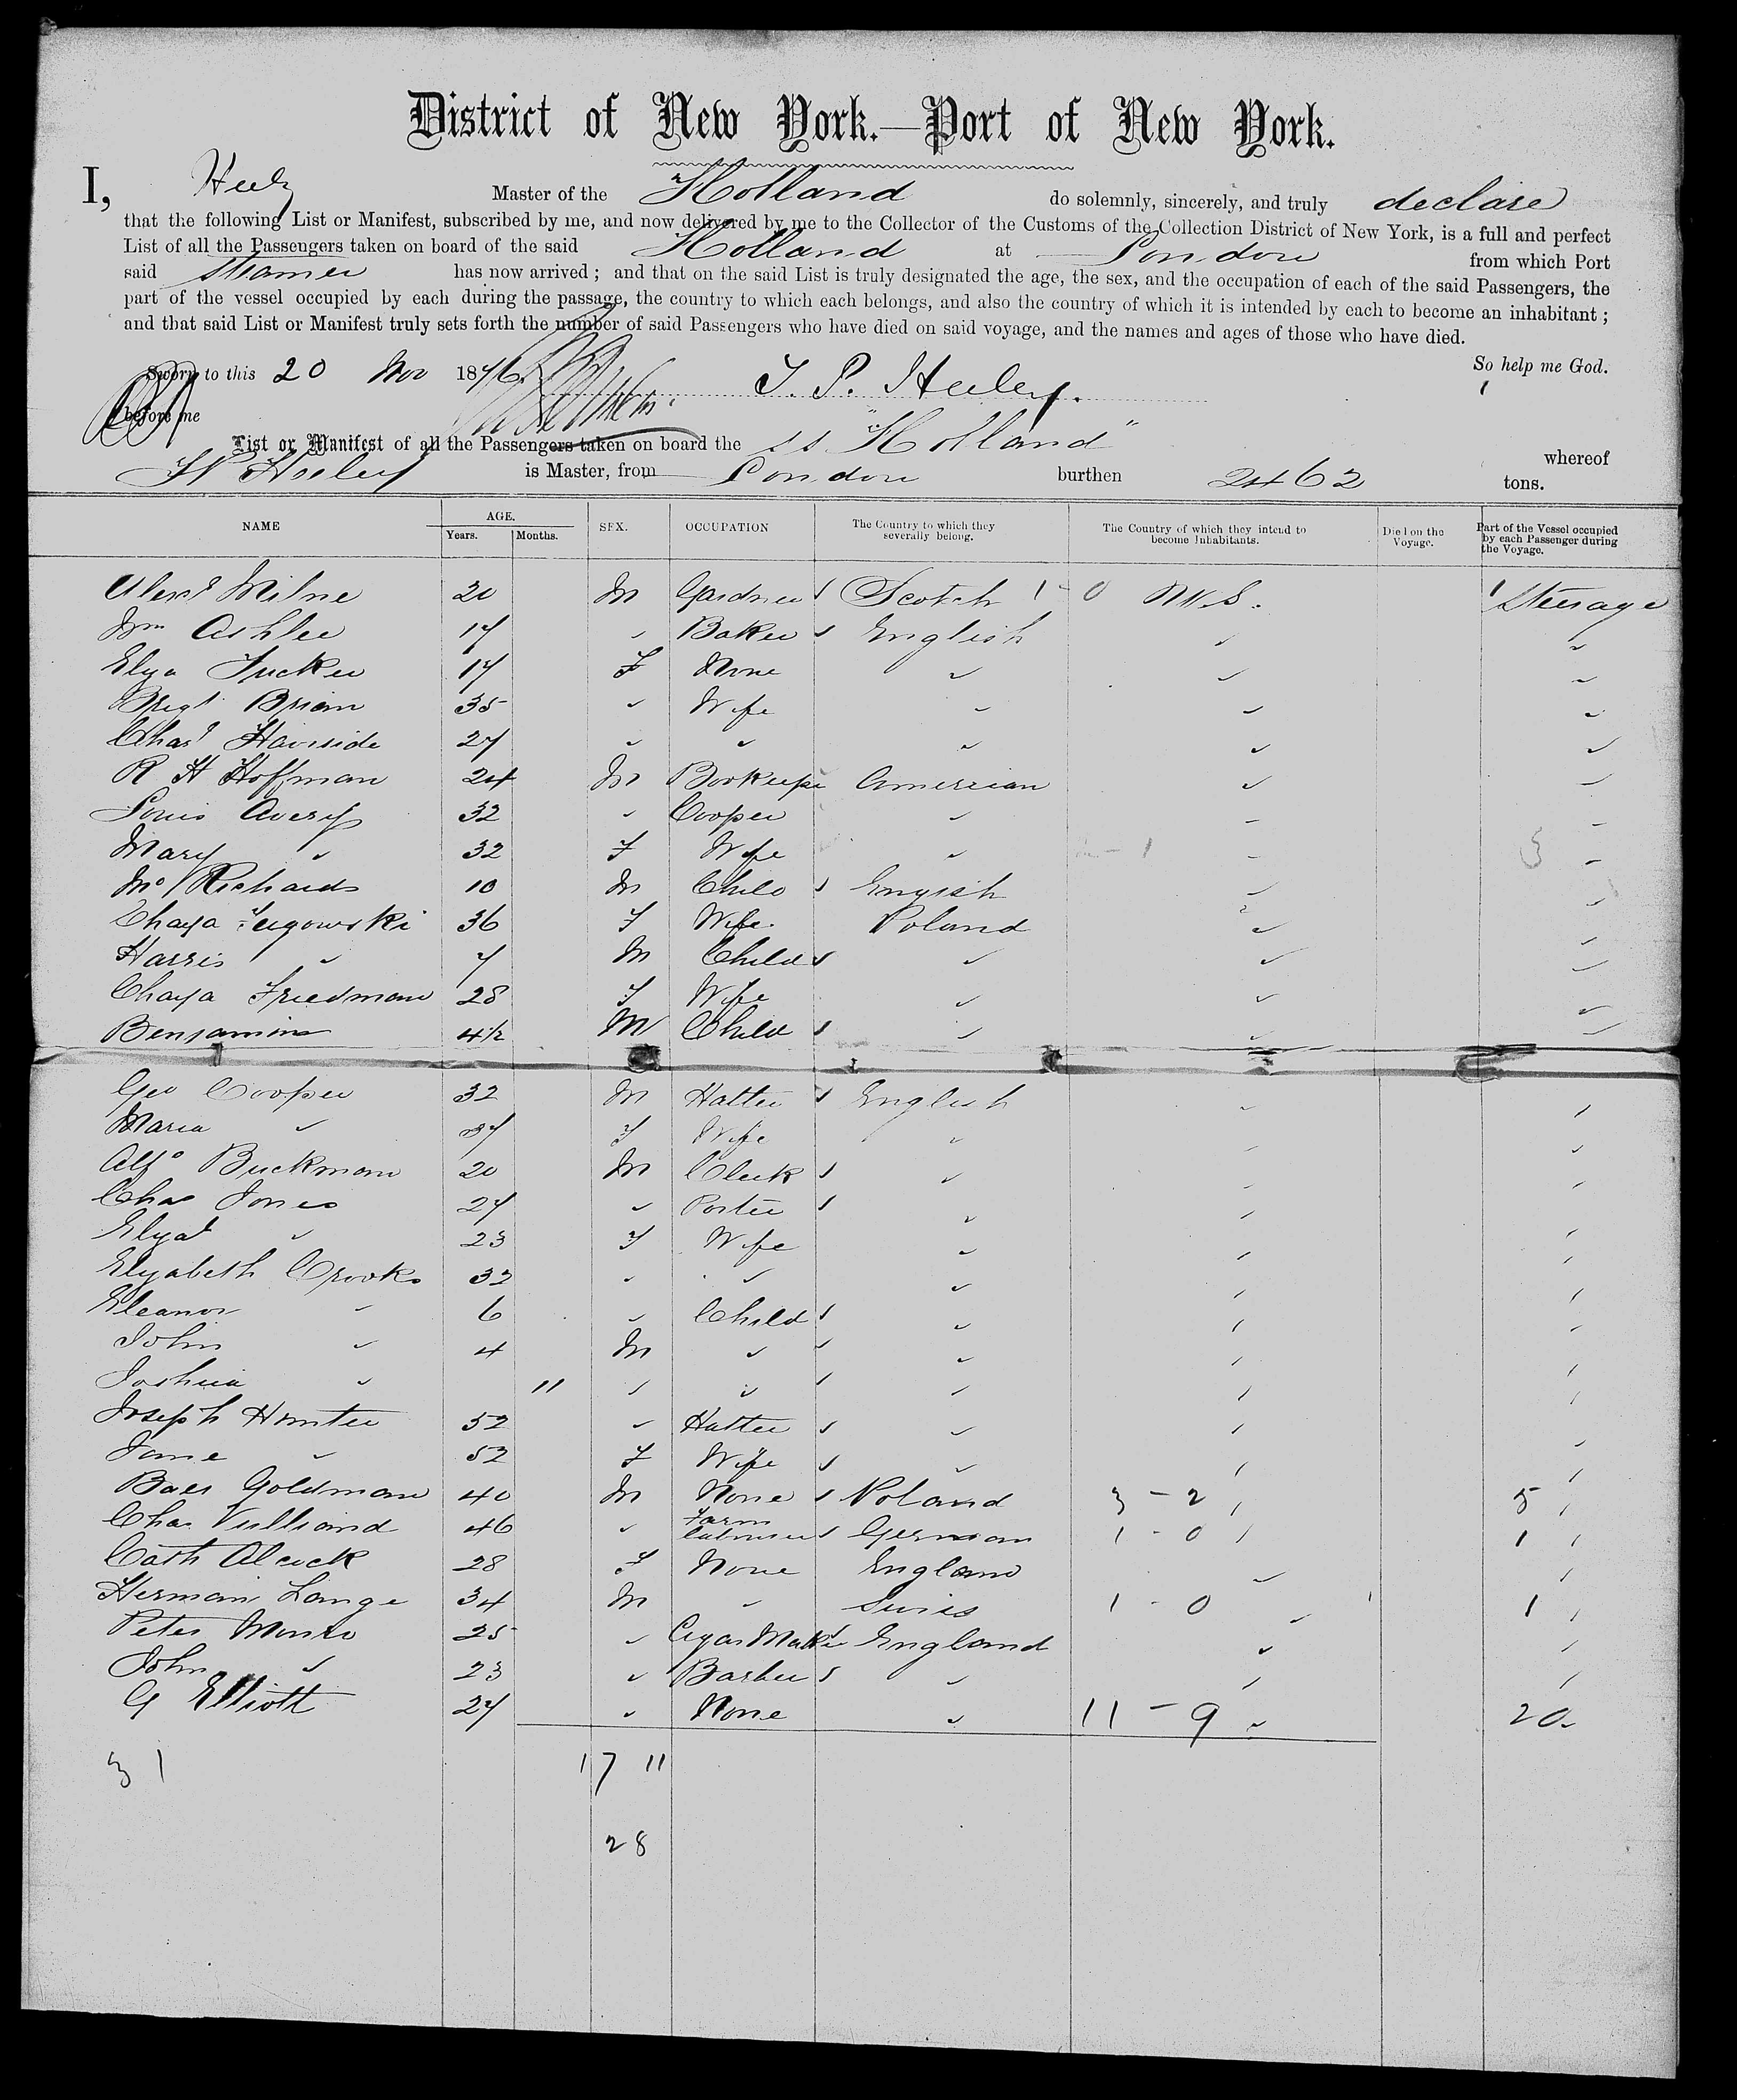 District of New York.—Port of New York.
I, Heely Master of the Holland do solemnly, sincerely, and truly declare
that the following List or Manifest, subscribed by me, and now delivered by me to the Collector of the Customs of the Collection District of New York, is a full and perfect
List of all the Passengers taken on board of the said Holland at London from which Port
said steamer has now arrived; and that on the said List is truly designated the age, the sex, and the occupation of each of the said Passengers, the
part of the vessel occupied by each during the passage, the country to which each belongs, and also the country of which it is intended by each to become an inhabitant;
and that said List or Manifest truly sets forth the number of said Passengers who have died on said voyage, and the names and ages of those who have died.
So help me God.
Sworn to this 20 Nov 1876 T. P. Heeley.
before me
List or Manifest of all the Passengers taken on board the ss "Holland" whereof
Heeley is Master, from London burthen 2462 tons.
NAME AGE. Years. Months. SEX. OCCUPATION The Country to which they severally belong. The Country of which they intend to become Inhabitants. Died on the Voyage. Part of the Vessel occupied by each Passenger during the Voyage.
Alexr Milne 20 M Gardner Scotch 1 - 0 U.S. Steerage
Wm Ashlee 17 " Baker English " "
Elya Tucker 17 F None " " "
Bregt Brian 35 " Wife " " "
Chas Haviside 27 " " " " "
R H Hoffman 24 M Bookeeper Amercian " "
Louis Avery 32 " Cooper " " "
Mary " 32 F Wife " - 1 " 3 "
Richards 10 M Child English " "
Chaya 36 F Wife Poland " "
Harris " 7 M Child " " "
Chaya Friedman 28 F Wife " " "
Benjamin 4½ M Child " " "
Geo Cooper 32 M Hatter English " "
Maria " 37 F Wife " " "
Alfd Buckman 20 M Clerk " " "
Chas Jones 27 " Porter " " "
Elyat " 23 F Wife " " "
Elyabeth Crooks 32 " " " " "
Eleanor " 6 " Child " " "
John " 4 M " " " "
Joshua " 11 " " " " "
Joseph Hunter 52 " Hatter " " "
Jane " 52 F Wife " " "
Baer Goldman 40 M None Poland 3 - 2 " 5 "
Chas Vulliand 46 " Farm Labourer German 1 - 0 " 1 "
Cath Alcock 28 F None England " "
Herman Lange 34 M " Swiss 1 - 0 " 1 "
Peter 25 " Cigar Maker England " "
John " 23 " Barber " " "
G Elliott 27 " None " 11 - 9 " 20 "
31 17 11
28